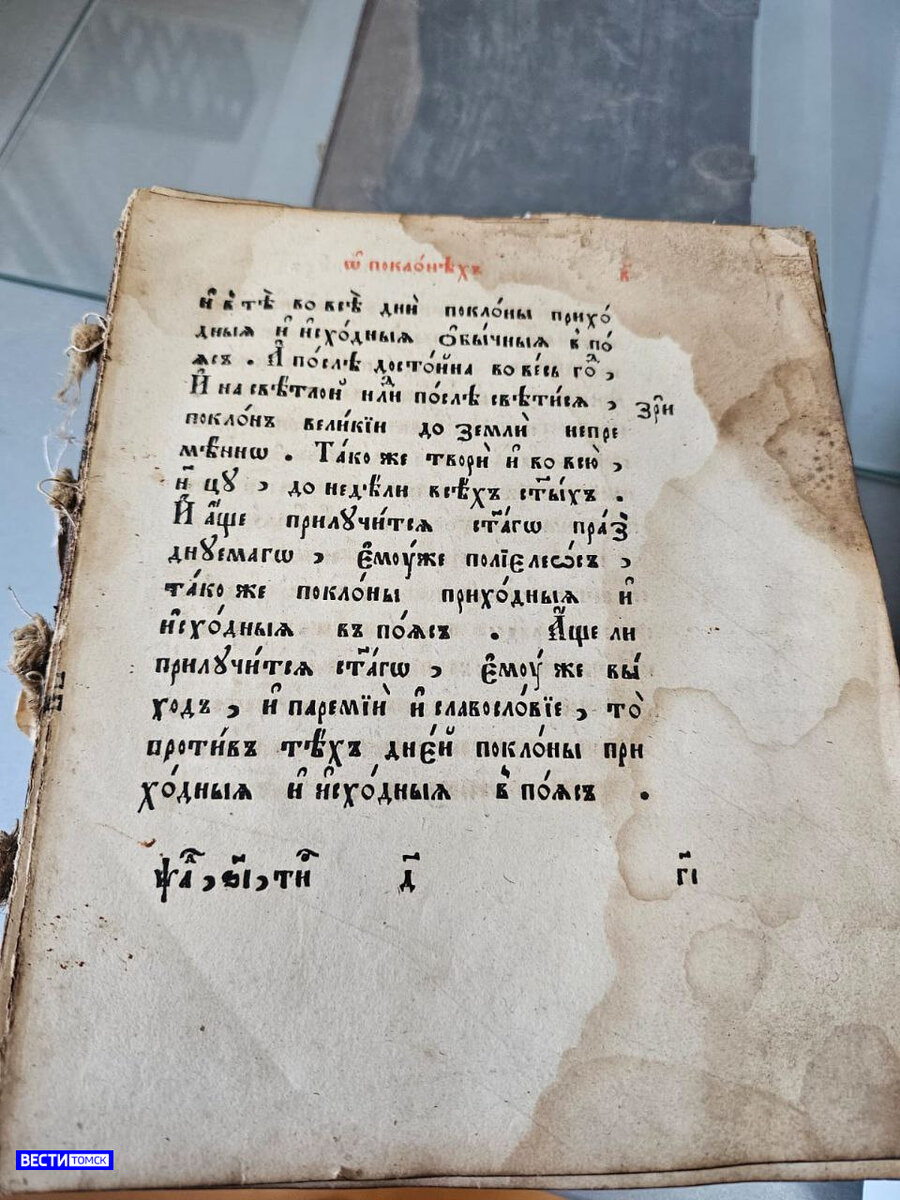 Ѡ҆ покло́нѣхъ в҃
и҆ в̾ тѣ̀ во всѣ̀ дни̑ покло́ны прихо́
дныѧ и҆ и҆схо́дныѧ ѻ҆бы́чныѧ в̾ по́
ѧсъ . А҆ по́слѣ досто́йна во ве́сь го́дⷣ ,
И҆ на свѣ́тлой и҆лѝ по́слѣ свѣ́тисѧ ,
зрѝ
покло́нъ вели́кїи до землѝ непре
мѣ́ннѡ . Та́ко же творѝ и҆ во всю̀ ,
н҃ цу , до недѣ́ли всѣ́хъ ст҃ы́хъ .
И҆ а҆́ще прилꙋчи́тсѧ ст҃а́гѡ пра́з
днꙋемагѡ , є҆моу́же полїеле́ѡсъ ,
та́ко же покло́ны прихо́дныѧ и҆
и҆схо́дныѧ въ по́ѧсъ . А҆́ще ли
прилꙋчи́тсѧ ст҃а́гѡ , є҆моу́ же вы́
ходъ , и҆ паремїѝ и҆ славосло́вїе , то̀
проти́въ тѣ́хъ дне́й покло́ны при
хо́дныѧ и҆ и҆схо́дныѧ в̾ по́ѧсъ .
д҃ г҃і